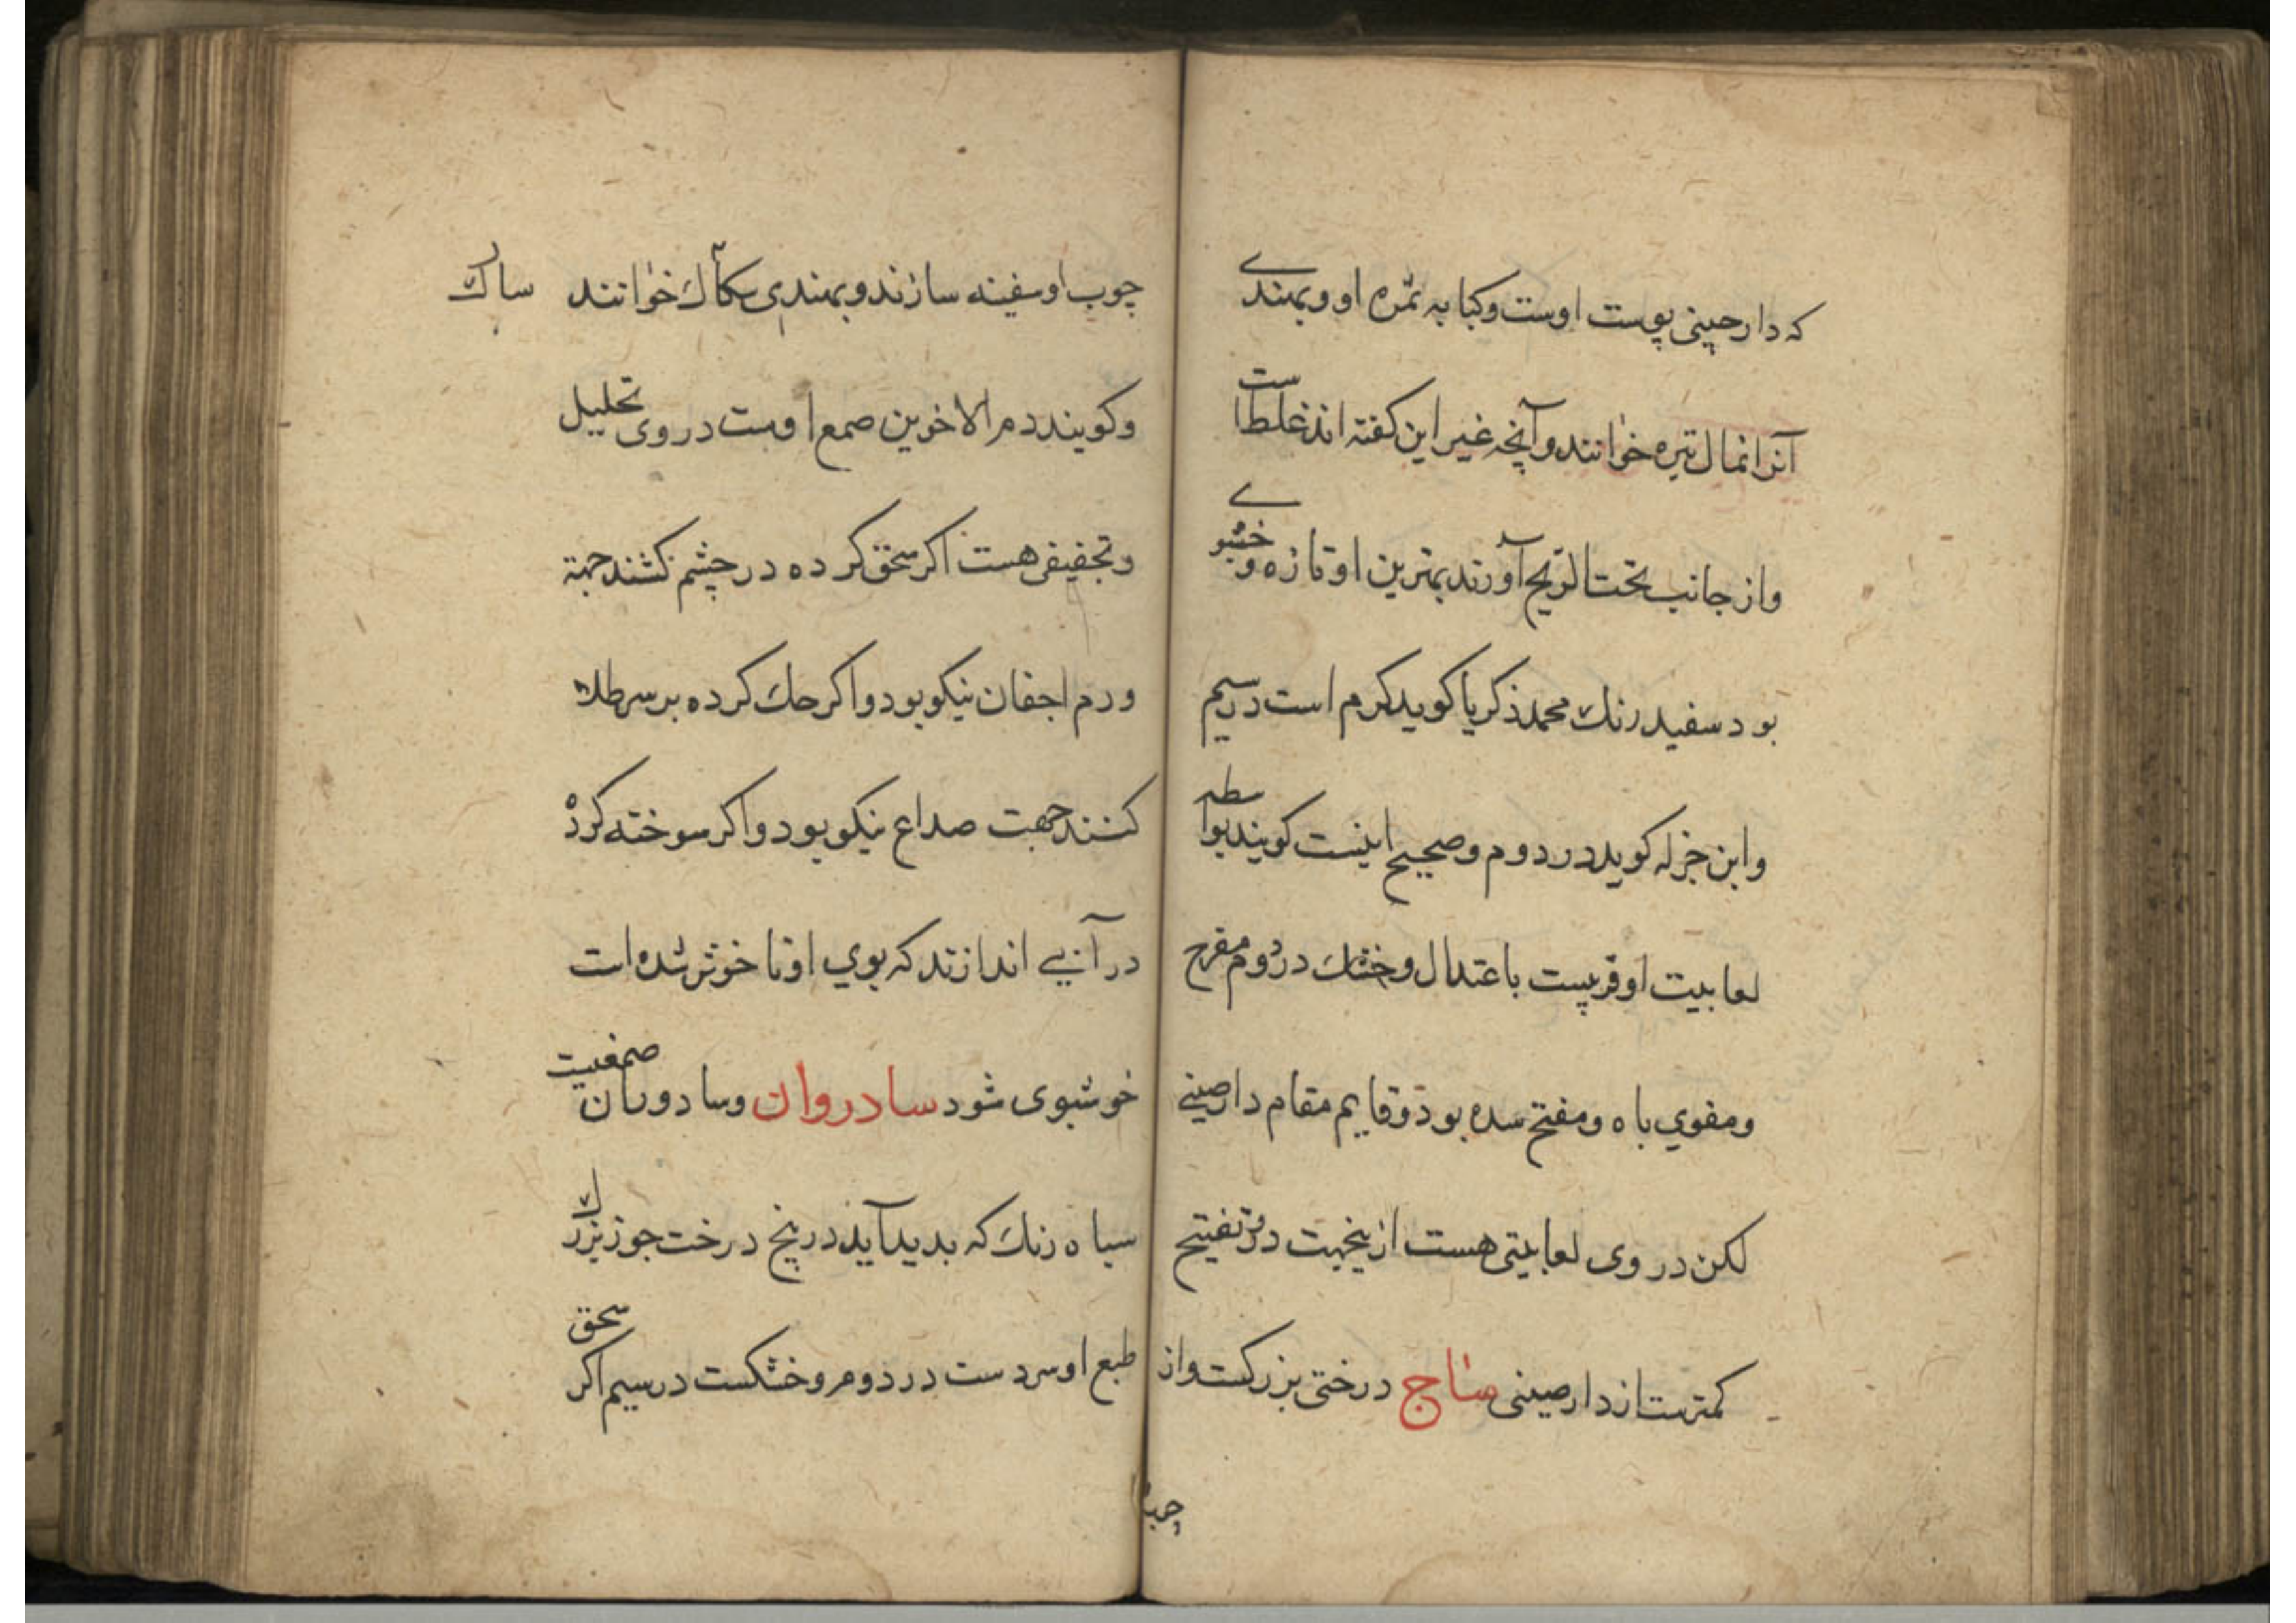 که دارچینی پوست اوست وکبابه ثمره او وبهندے
آنرا نمال تیره خوانند وآنچه غیر این کفته اند غلطاست
واز جانب تحت الریح آورند بهترین او تازه وخشبوے
بود سفید رنك محمد ذکریا کوید کرم است در سیم
وابن جزله کوید در دوم وصحیح اینست کویند بواسطه
لعابیت او قریبست باعتدال وخشك در دوم مفرح
ومقوی باه ومفتح سده بود وقایم مقام دارصینے
لکن در وی لعابیتی هست ازینجهت در تفتیح
کمترست از دارصینی ساج درختی بزرکست واز
چوب
چوب او سفینه سازند وبهندی سکاك خوانند ساك
وکویند دم الاخوین صمع اوست در وی تحلیل
وتجفیفی هست اکر سحق کرده در چشم کشند جهة
ورم اجفان نیکو بود واکر حك کرده بر سر طلا
کنند جهت صداع نیکو بود واکر سوخته کرده
در آبے اندازند که بوی او ناخوش شده است
خوشبوی شود سادروان وسادوران صمغیت
سیاه رنك که بدید آید در بیخ درخت جوز بزرك
طبع او سردست در دوم وخشکست در سیم اکر سحق